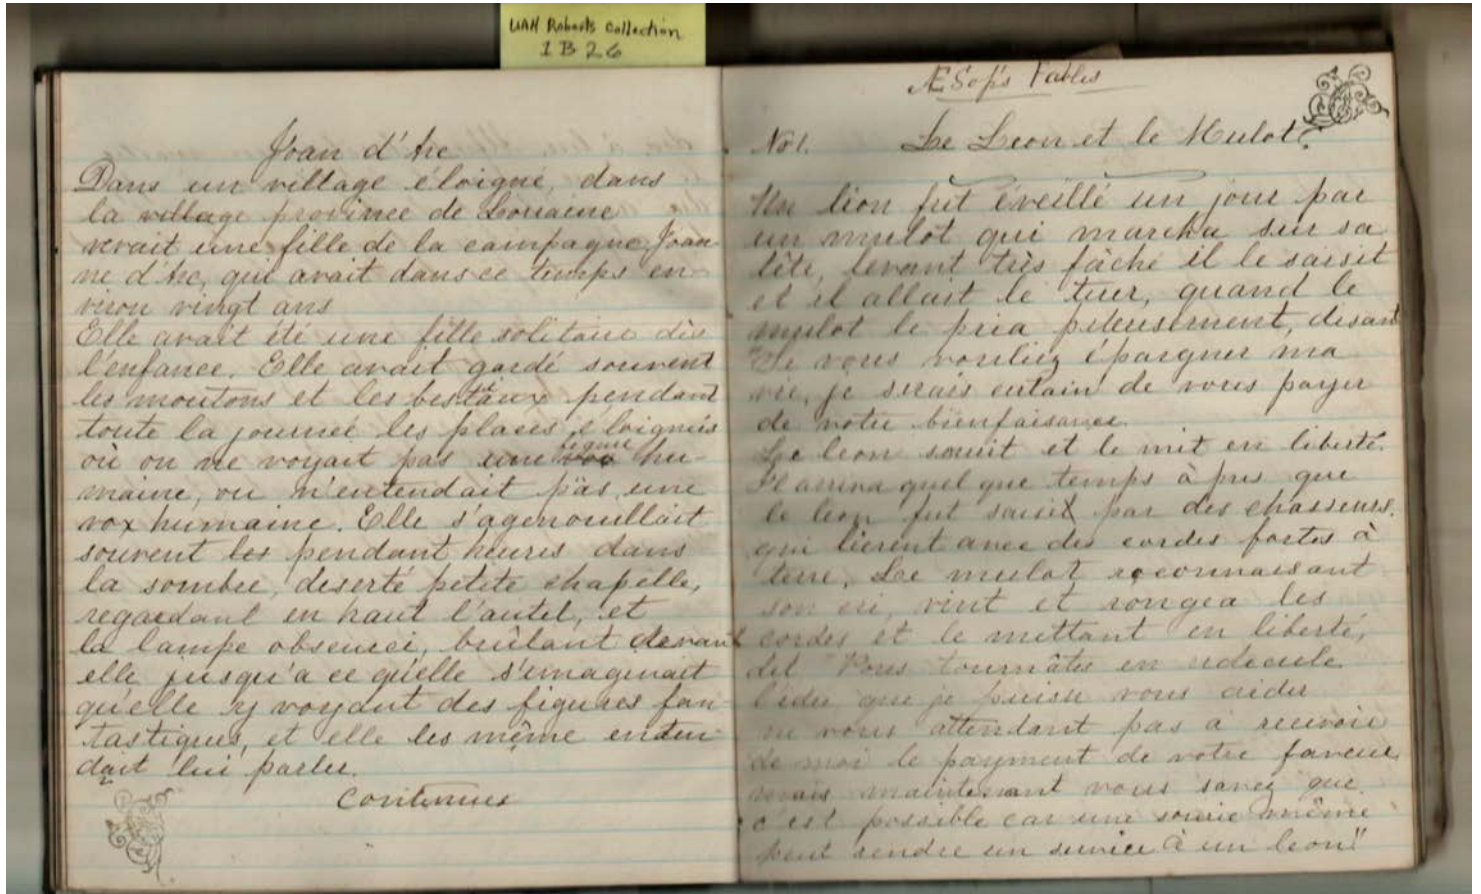 UAH Roberts Collection
1 B 26
Joan d'Arc
Dans un village éloigné, dans
la village province de Lorraine
vivait une fille de la campagne, Joan
ne d'Arc, qui avait dans ce temps en-
viron vingt ans
Elle avait été une fille solitaire dès
l'enfance. Elle avait gardé souvent
les moutons et les bestiaux pendant
toute la journée les places éloignés
où on ne voyait pas une figure hu-
maine, ou n'entendait pas une
vox humaine. Elle s'agenouillait
souvent les pendant heures dans
la sombre, deserté petite chapelle,
regardant en haut l'autel, et
la lampe obscurci, brûlant devant
elle jusqu'a ce qu'elle s'imaginait
qu'elle y voyait des figures fan
tastiques, et elle les même enten
dait lui parler.
Continues
ÆSop's Fables
No 1. Le Leon et le Mulot.
Un lion fut éveillé un jour par
un mulot qui marcha sur sa
tête, levant très fâché il le saisit
et il allait le tuer, quand le
mulot le pria piteusement, disant
"Si vous vouliez épargner ma
vie, je serais certain de vous payer
de votre bienfaisance.
Le leon sourit et le mit en liberté.
Il arriva quel que temps à pres que
le leon fut saisit par des chasseurs.
qui lierent avec des cordes fortes à
terre. Le mulot reconnaisant
son cri, vint et rongea les
cordes et le mettant en liberté,
dit "Vous tournâtes en redecule
l'idée que je puisse vous aider
ne vous attendant pas a recevoir
de moi le payment de votre faveur
mais maintenant vous savez que
c'est possible car une souris même
peut rendre un service à un leon"